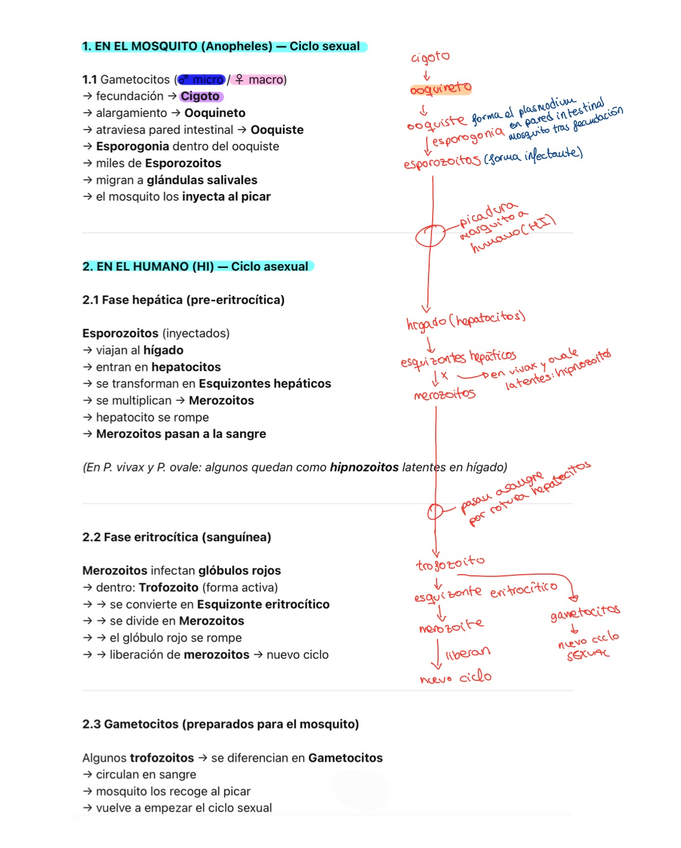 1. EN EL MOSQUITO (Anopheles) — Ciclo sexual
1.1 Gametocitos (♂ micro / ♀ macro)
→ fecundación → Cigoto
→ alargamiento → Ooquineto
→ atraviesa pared intestinal → Ooquiste
→ Esporogonia dentro del ooquiste
→ miles de Esporozoitos
→ migran a glándulas salivales
→ el mosquito los inyecta al picar
cigoto
↓
ooquineto
↓
ooquiste forma el plasmodium
en pared intestinal
mosquito tras fecundación
↓ esporogonia
esporozoitos (forma infectante)
picadura
mosquito a
humano (HI)
2. EN EL HUMANO (HI) — Ciclo asexual
2.1 Fase hepática (pre-eritrocítica)
Esporozoitos (inyectados)
→ viajan al hígado
→ entran en hepatocitos
→ se transforman en Esquizontes hepáticos
→ se multiplican → Merozoitos
→ hepatocito se rompe
→ Merozoitos pasan a la sangre
(En P. vivax y P. ovale: algunos quedan como hipnozoitos latentes en hígado)
hígado (hepatocitos)
↓
esquizontes hepáticos
↓ x → en vivax y ovale
latentes: hipnozoitos
merozoitos
pasan a sangre
por rotura hepatocitos
2.2 Fase eritrocítica (sanguínea)
Merozoitos infectan glóbulos rojos
→ dentro: Trofozoito (forma activa)
→ → se convierte en Esquizonte eritrocítico
→ → se divide en Merozoitos
→ → el glóbulo rojo se rompe
→ → liberación de merozoitos → nuevo ciclo
trofozoito
↓
esquizonte eritrocítico
↓
merozoite
↓ liberan
nuevo ciclo
gametocitos
↓
nuevo ciclo
sexual
2.3 Gametocitos (preparados para el mosquito)
Algunos trofozoitos → se diferencian en Gametocitos
→ circulan en sangre
→ mosquito los recoge al picar
→ vuelve a empezar el ciclo sexual